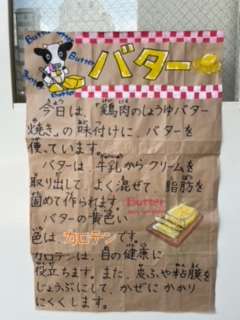 Butter
Butter
Butter
バター
今日は、「鶏肉のしょうゆバター
焼き」の味付けに、バターを
使っています。
バターは、牛乳からクリームを
取り出して、よく混ぜて、脂肪を
固めて作られます。
Butter
バターの黄色い
色は、カロテンです。
カロテンは、目の健康に
役立ちます。また、皮ふや粘膜を
じょうぶにして、かぜにかかり
にくくします。